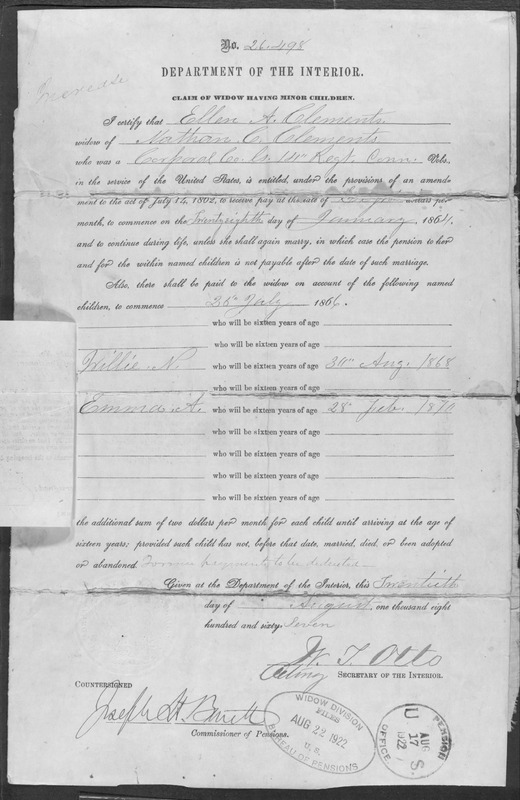 No. 26.498
DEPARTMENT OF THE INTERIOR.
Increase
CLAIM OF WIDOW HAVING MINOR CHILDREN.
I certify that Ellen A. Clements
widow of Nathan C. Clements
who was a Corporal Co. G. 14th Regt. Conn. Vols.
in the service of the United States, is entitled, under the provisions of an amend-
ment to the act of July 14, 1862, to receive pay at the rate of dollars per
month, to commence on the Twenty eighth day of January, 1864,
and to continue during life, unless she shall again marry, in which case the pension to her
and for the within named children is not payable after the date of such marriage.
Also, there shall be paid to the widow on account of the following named
children, to commence 25th July 1866:
who will be sixteen years of age
who will be sixteen years of age
Willie N. who will be sixteen years of age 30th Aug. 1868
who will be sixteen years of age
Emma A. who will be sixteen years of age 28 Feb. 1870
who will be sixteen years of age
who will be sixteen years of age
who will be sixteen years of age
who will be sixteen years of age
the additional sum of two dollars per month for each child until arriving at the age of
sixteen years; provided such child has not, before that date, married, died, or been adopted
or abandoned. Former payments to be deducted.
Given at the Department of the Interior, this Twentieth
day of August, one thousand eight
hundred and sixty-seven
W. T. Otto
Acting SECRETARY OF THE INTERIOR.
COUNTERSIGNED
Joseph H. Barrett
Commissioner of Pensions.
WIDOW DIVISION
FILED
AUG 22 1922
U. S.
BUREAU OF PENSIONS
U. S. PENSION OFFICE
AUG
17
1922